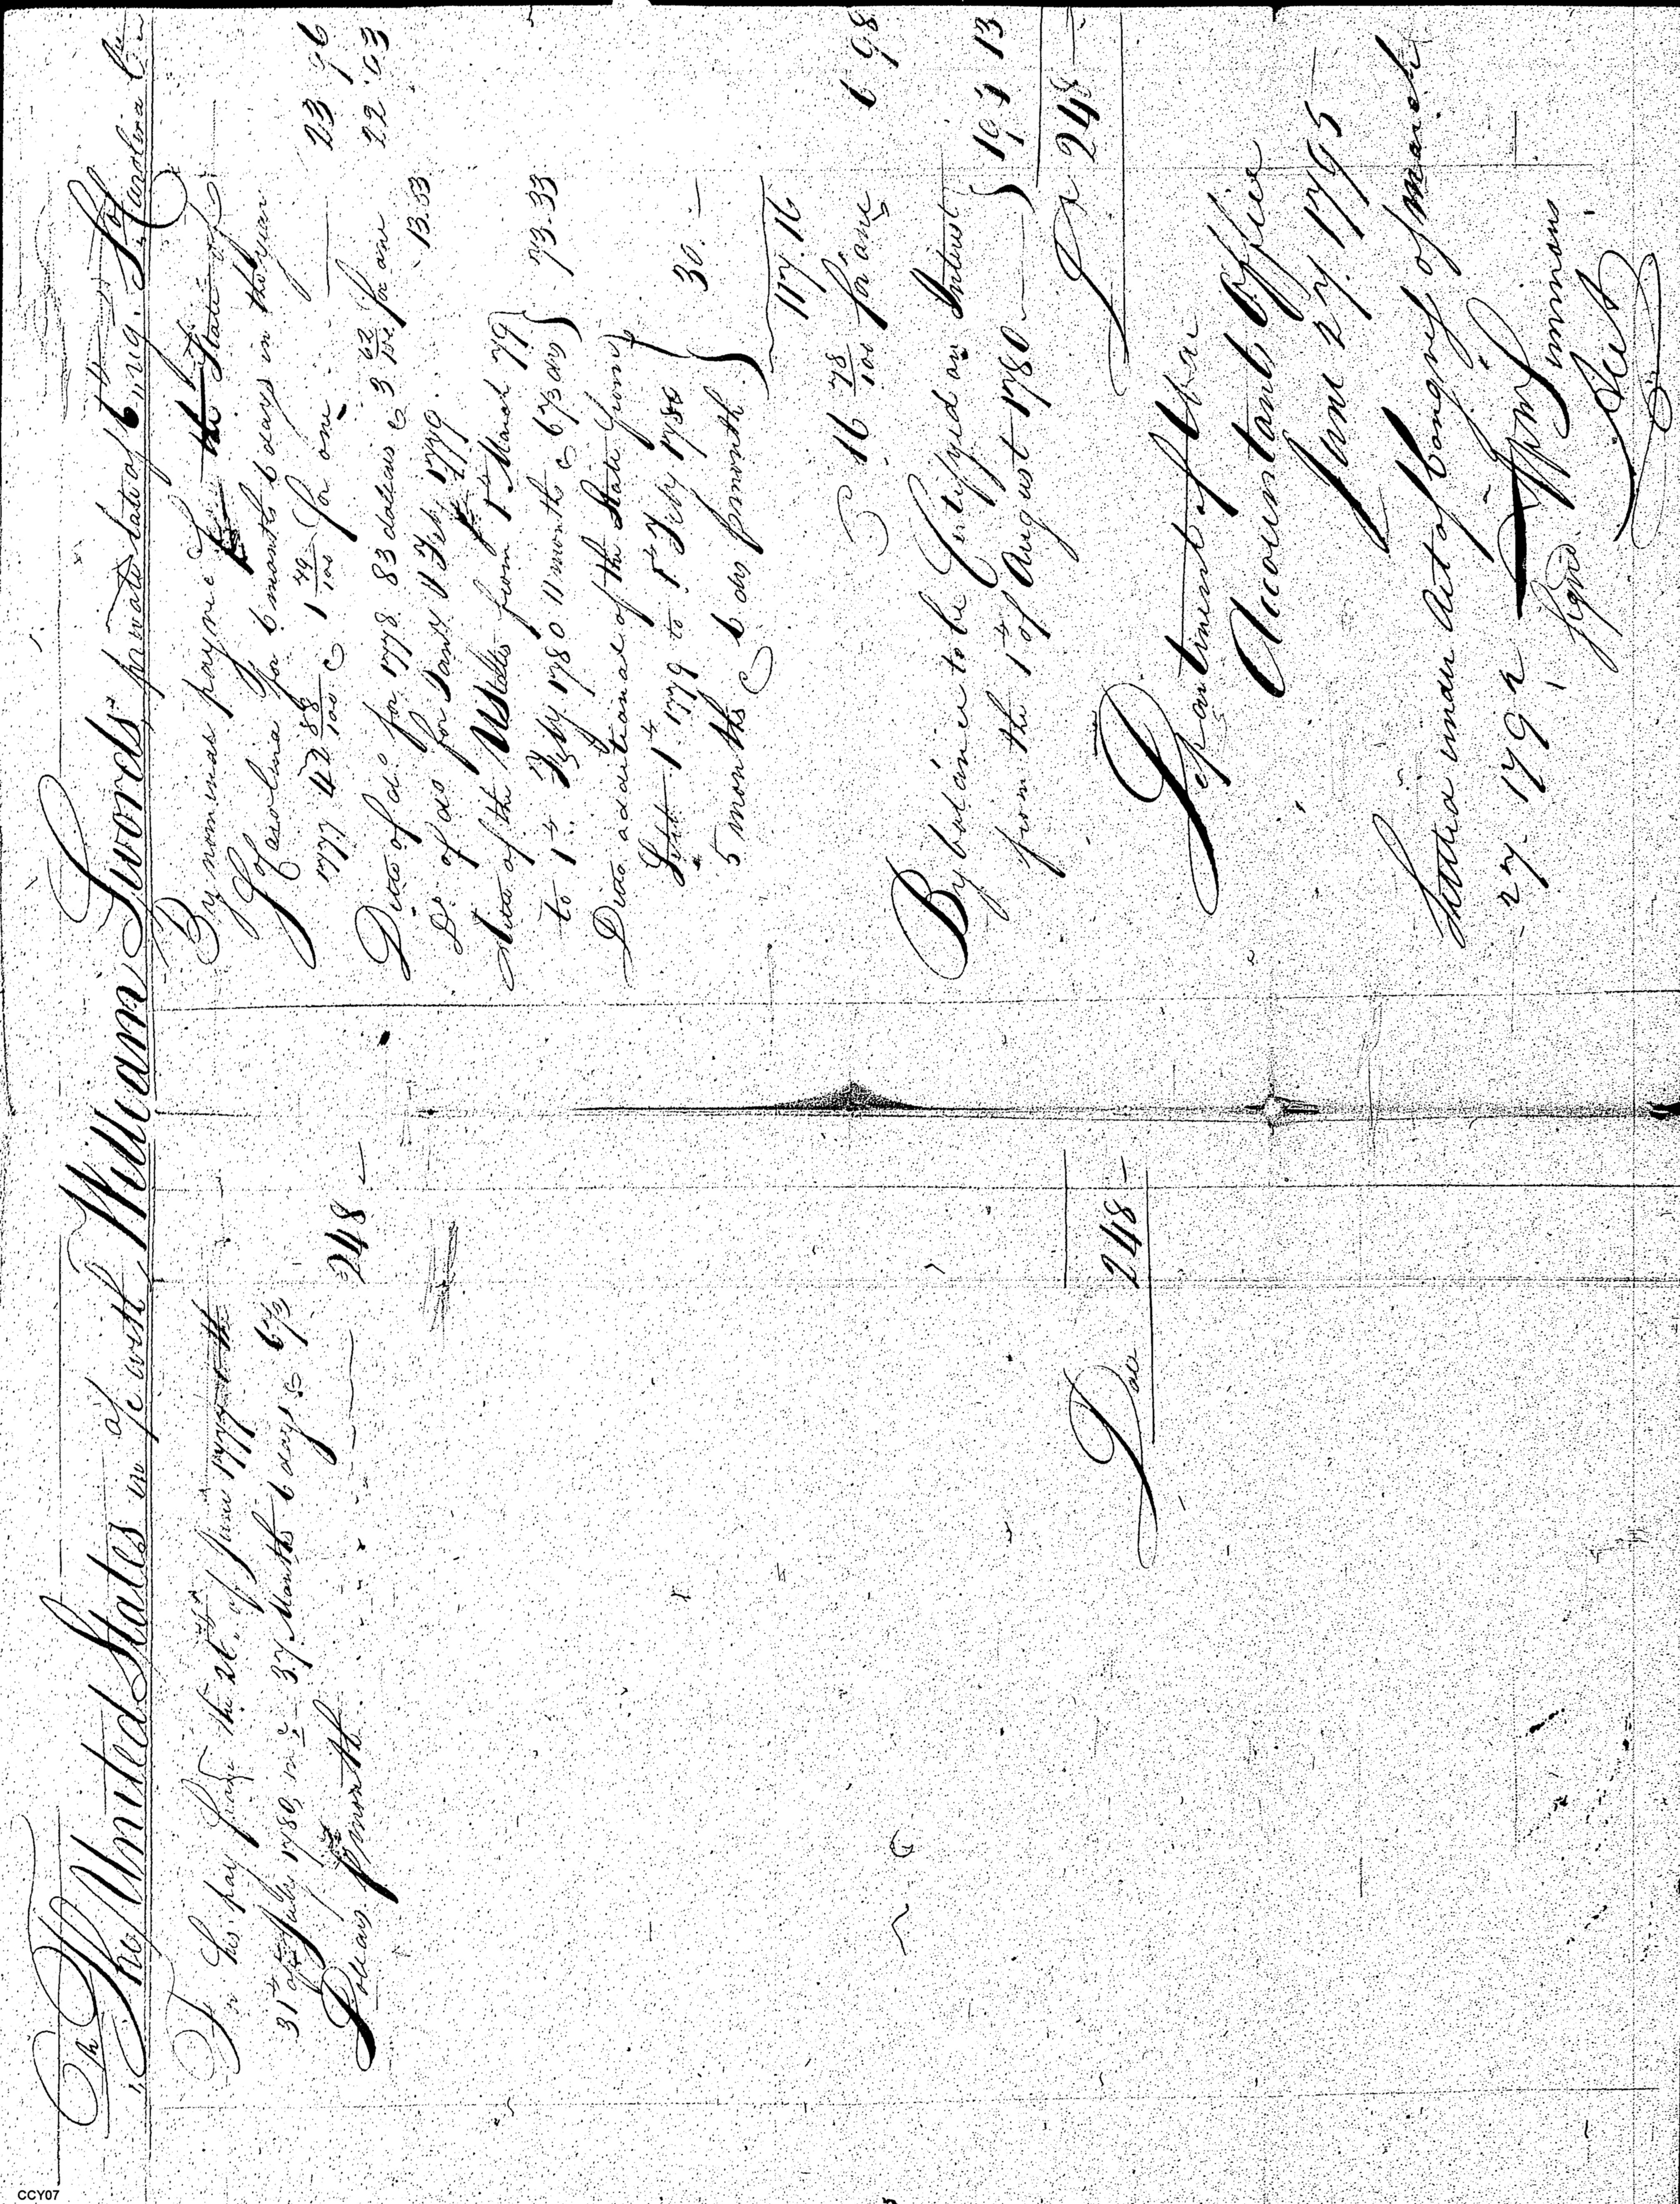 The United States in a/c with William Swords private late of 6th Reg. So Carolina
To his pay from the 26th of June 1777 to the
31st of July 1780, in c 37 Months 6 days @ 6 2/3
Dollars p month. 248 —
Dolls 248 —
By nominal payme
Carolina for 6 months 6 days in the year
1777 42 88/100 @ 1 79/100 for one — 23 96
Ditto of do for 1778. 83 dollars @ 3 for one 22 63
Do of do for Jany & Feby 1779. 13.33
Ditto of the U States from 1st March 79
to 1st Feby 1780 11 months @ 6 2/3 drs } 73.33
Ditto additional of the State from
Sept 1st 1779 to 1st Feby 1780
5 months @ 6 drs p month } 30. —
117.16
@ 16 78/100 for one 6 98
By balance to be Certifyed on Interest
from the 1st of August 1780 — } 194 13
Ds 248 —
Department of War
Accountants Office
June 27. 1795 —
Stated under Act of Congress of March
27. 1792
Signd.